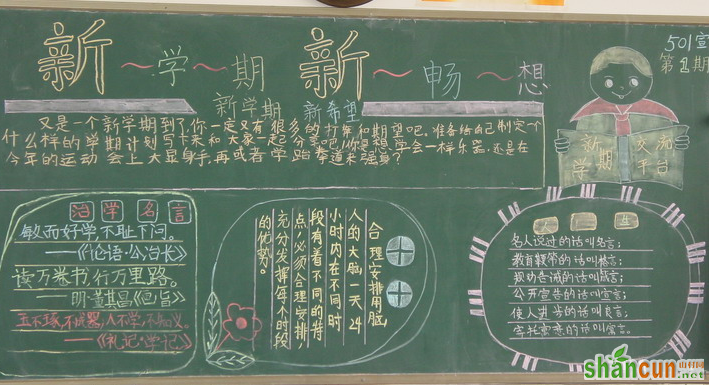 新～学～期 新～畅～想
501宣
第2期
新学期 新希望
又是一个新学期到了,你一定又有很多的打算和期望吧。准备给自己制定个
什么样的学期计划 写下来和大家一起分享吧!你是想学会一样乐器,还是在
今年的运动会上大显身手,再或者学跆拳道来强身?
新学期
交流平台
治学名言
敏而好学不耻下问。
——《论语·公冶长》
读万卷书,行万里路。
——明·董其昌《画旨》
玉不琢,不成器,人不学,不知义。
——《礼记·学记》
合理安排用脑
人的大脑一天24
小时内在不同时
段有着不同的特
点,必须合理安排,
充分发挥每个时段
的优势。
名人说过的话叫名言;
教育鞭策的话叫格言;
规劝告诫的话叫箴言;
公开宣告的话叫宣言;
使人进步的话叫良言;
寄托哀思的话叫唁言。
shancun.net
山村网